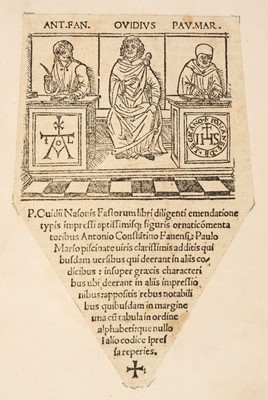 ANT.FAN. OVIDIVS PAV.MAR.
IHS
P.Ouidii Nasonis Fastorum libri diligenti emendatione
typis impressi aptissimisq; figuris ornati cõmenta
toribus Antonio Constãtino Fanensi: Paulo
Marso piscinate uiris clarissimis additis qui
busdam uersibus qui deerant in aliis co⸗
dicibus: insuper græcis characteri
bus ubi deerant in aliis impressio
nibus: appositis rebus notabili
bus quibusdam in margine
una cũ tabula in ordine
alphabeti: que nullo
ĩ alio codice ĩpres
sa reperies.